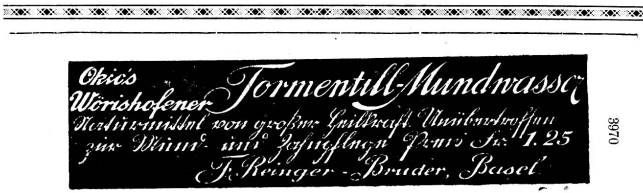 Okic's
Wörishofener Tormentill-Mundwasser
Naturmittel von großer Heilkraft Unübertroffen
zur Mund- und Zahnpflege Preis Fr. 1.25
F. Reinger-Bruder, Basel
3970